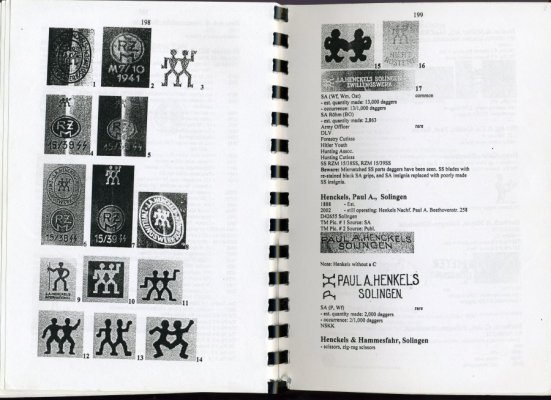 198
RZM
M7/10
1941
1
2
3
RZM
15/39 SS
15/39 SS
4
5
RZM
15/39 SS
RZM
15/39 SS
6
7
8
9
10
11
12
13
14
199
15
16
J.A. HENCKELS SOLINGEN
ZWILLINGSWERK
17
SA (Wf, Wm, Ost) common
- est. quantity made: 13,000 daggers
- occurrence: 13/1,000 daggers
SA Röhm (BO)
- est. quantity made: 2,863
Army Officer rare
DLV
Forestry Cutlass
Hitler Youth
Hunting Assoc.
Hunting Cutlass
SS RZM 15/38SS, RZM 15/39SS
Beware: Mismatched SS parts daggers have been seen. SS blades with
re-stained black SA grips, and SA insignia replaced with poorly made
SS insignia.
Henckels, Paul A., Solingen
1888 - Est.
2002 - still operating: Henkels Nachf. Paul A. Beethovenstr. 258
D42655 Solingen
TM Pic. # 1 Source: SA
TM Pic. # 2 Source: Publ.
PAUL A. HENCKELS
SOLINGEN
Note: Henkels without a C
PAUL A. HENKELS
SOLINGEN.
SA (P, Wf) rare
- est. quantity made: 2,000 daggers
- occurrence: 2/1,000 daggers
NSKK
Henckels & Hammesfahr, Solingen
- scissors, zig-zag scissors